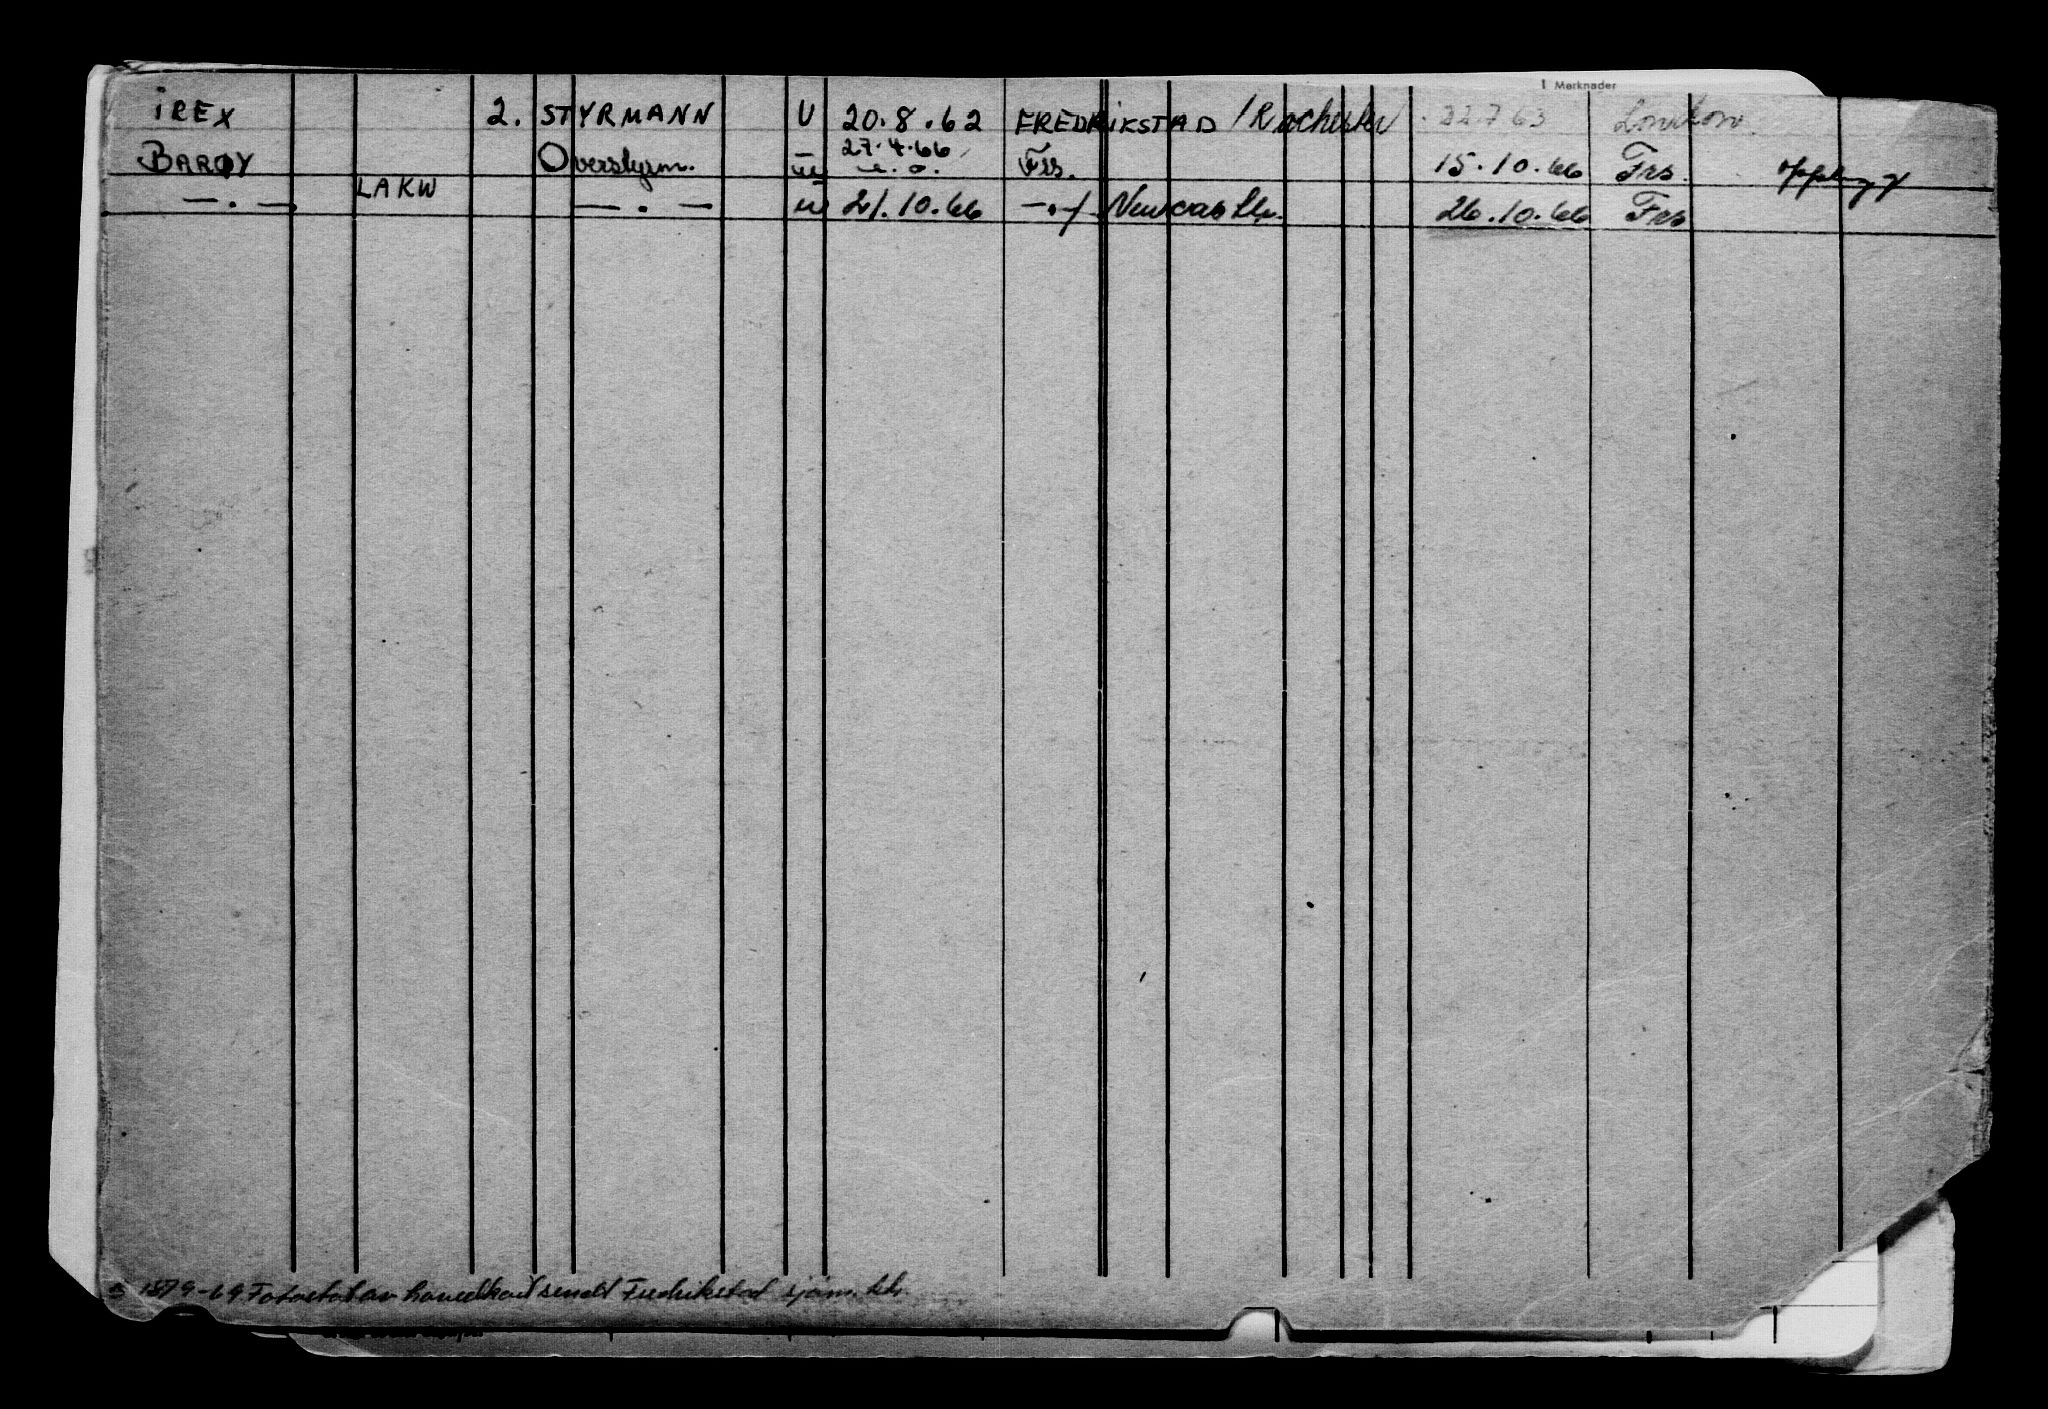 Merknader
IREX 2. STYRMANN U 20.8.62 FREDRIKSTAD / Rochester 22 7 63 London
27.4.66
BARØY Overstyrm. u u.o. Frs. 15.10.66 Frs. opplagg
LAKW
— . — — . — u 21.10.66 — . — / Newcastle. 26.10.66 Frs
15/9-69 Fotostat av hovedkort sendt Fredrikstad sjøm. ktr.